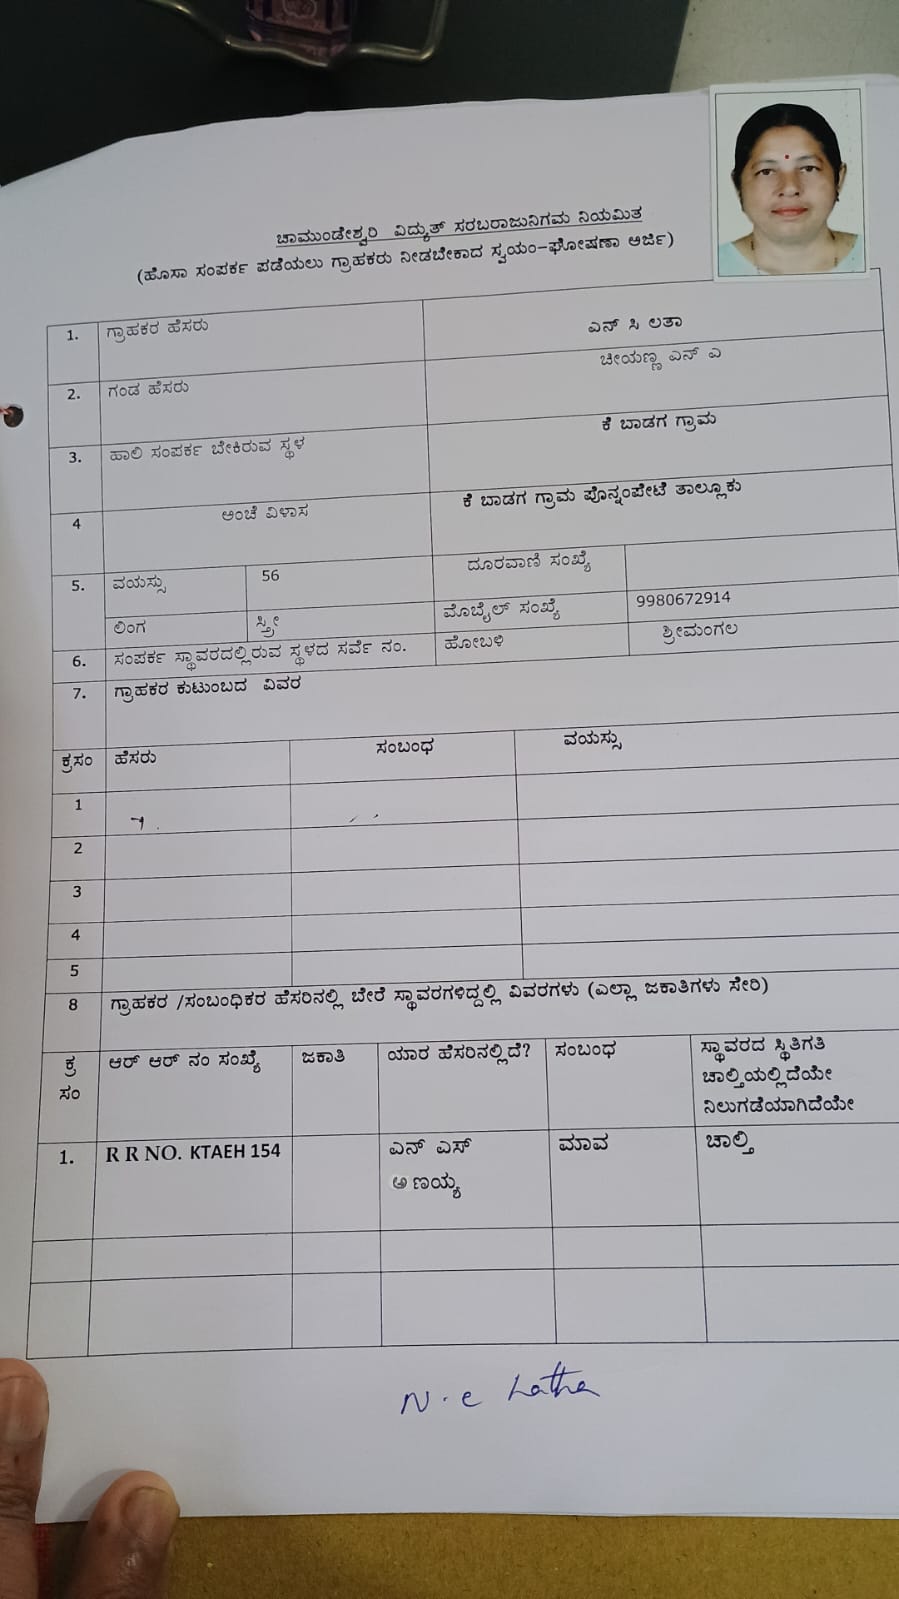 ಚಾಮುಂಡೇಶ್ವರಿ ವಿದ್ಯುತ್ ಸರಬರಾಜುನಿಗಮ ನಿಯಮಿತ
(ಹೊಸಾ ಸಂಪರ್ಕ ಪಡೆಯಲು ಗ್ರಾಹಕರು ನೀಡಬೇಕಾದ ಸ್ವಯಂ-ಘೋಷಣಾ ಅರ್ಜಿ)
1. ಗ್ರಾಹಕರ ಹೆಸರು ಎನ್ ಸಿ ಲತಾ
2. ಗಂಡ ಹೆಸರು ಚೀಯಣ್ಣ ಎನ್ ಎ
3. ಹಾಲಿ ಸಂಪರ್ಕ ಬೇಕಿರುವ ಸ್ಥಳ ಕೆ ಬಾಡಗ ಗ್ರಾಮ
4 ಅಂಚೆ ವಿಳಾಸ ಕೆ ಬಾಡಗ ಗ್ರಾಮ ಪೊನ್ನಂಪೇಟೆ ತಾಲ್ಲೂಕು
5. ವಯಸ್ಸು 56 ದೂರವಾಣಿ ಸಂಖ್ಯೆ
ಲಿಂಗ ಸ್ತ್ರೀ ಮೊಬೈಲ್ ಸಂಖ್ಯೆ 9980672914
6. ಸಂಪರ್ಕ ಸ್ಥಾವರದಲ್ಲಿರುವ ಸ್ಥಳದ ಸರ್ವೆ ನಂ. ಹೋಬಳಿ ಶ್ರೀಮಂಗಲ
7. ಗ್ರಾಹಕರ ಕುಟುಂಬದ ವಿವರ
ಕ್ರಸಂ ಹೆಸರು ಸಂಬಂಧ ವಯಸ್ಸು
1
2
3
4
5
8 ಗ್ರಾಹಕರ /ಸಂಬಂಧಿಕರ ಹೆಸರಿನಲ್ಲಿ ಬೇರೆ ಸ್ಥಾವರಗಳಿದ್ದಲ್ಲಿ ವಿವರಗಳು (ಎಲ್ಲಾ ಜಕಾತಿಗಳು ಸೇರಿ)
ಕ್ರ ಆರ್ ಆರ್ ನಂ ಸಂಖ್ಯೆ ಜಕಾತಿ ಯಾರ ಹೆಸರಿನಲ್ಲಿದೆ? ಸಂಬಂಧ ಸ್ಥಾವರದ ಸ್ಥಿತಿಗತಿ
ಸಂ ಚಾಲ್ತಿಯಲ್ಲಿದೆಯೇ
ನಿಲುಗಡೆಯಾಗಿದೆಯೇ
1. R R NO. KTAEH 154 ಎನ್ ಎಸ್ ಮಾವ ಚಾಲ್ತಿ
ಅಣಯ್ಯ
N.C Latha